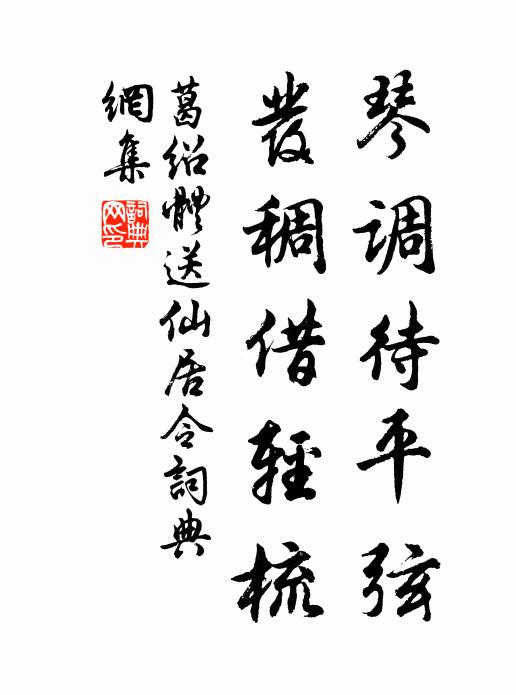 琴调待平弦
發稠借輕梳
葛绍體送仙居令詞典
網集
詞典
网